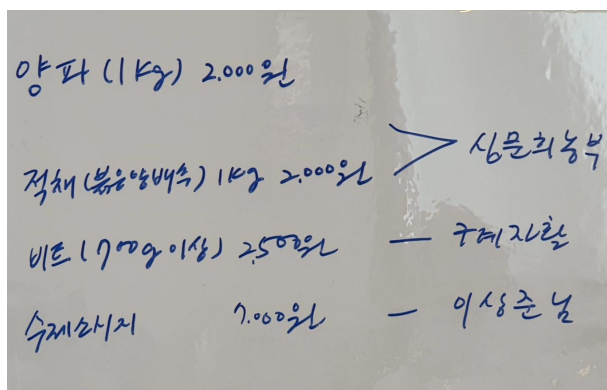 양파(1Kg) 2.000원
적채(붉은양배추) 1Kg 2.000원 > 심문희농부
비트(700g이상) 2,500원 - 구례자활
수제소시지 7.000원 - 이상준님